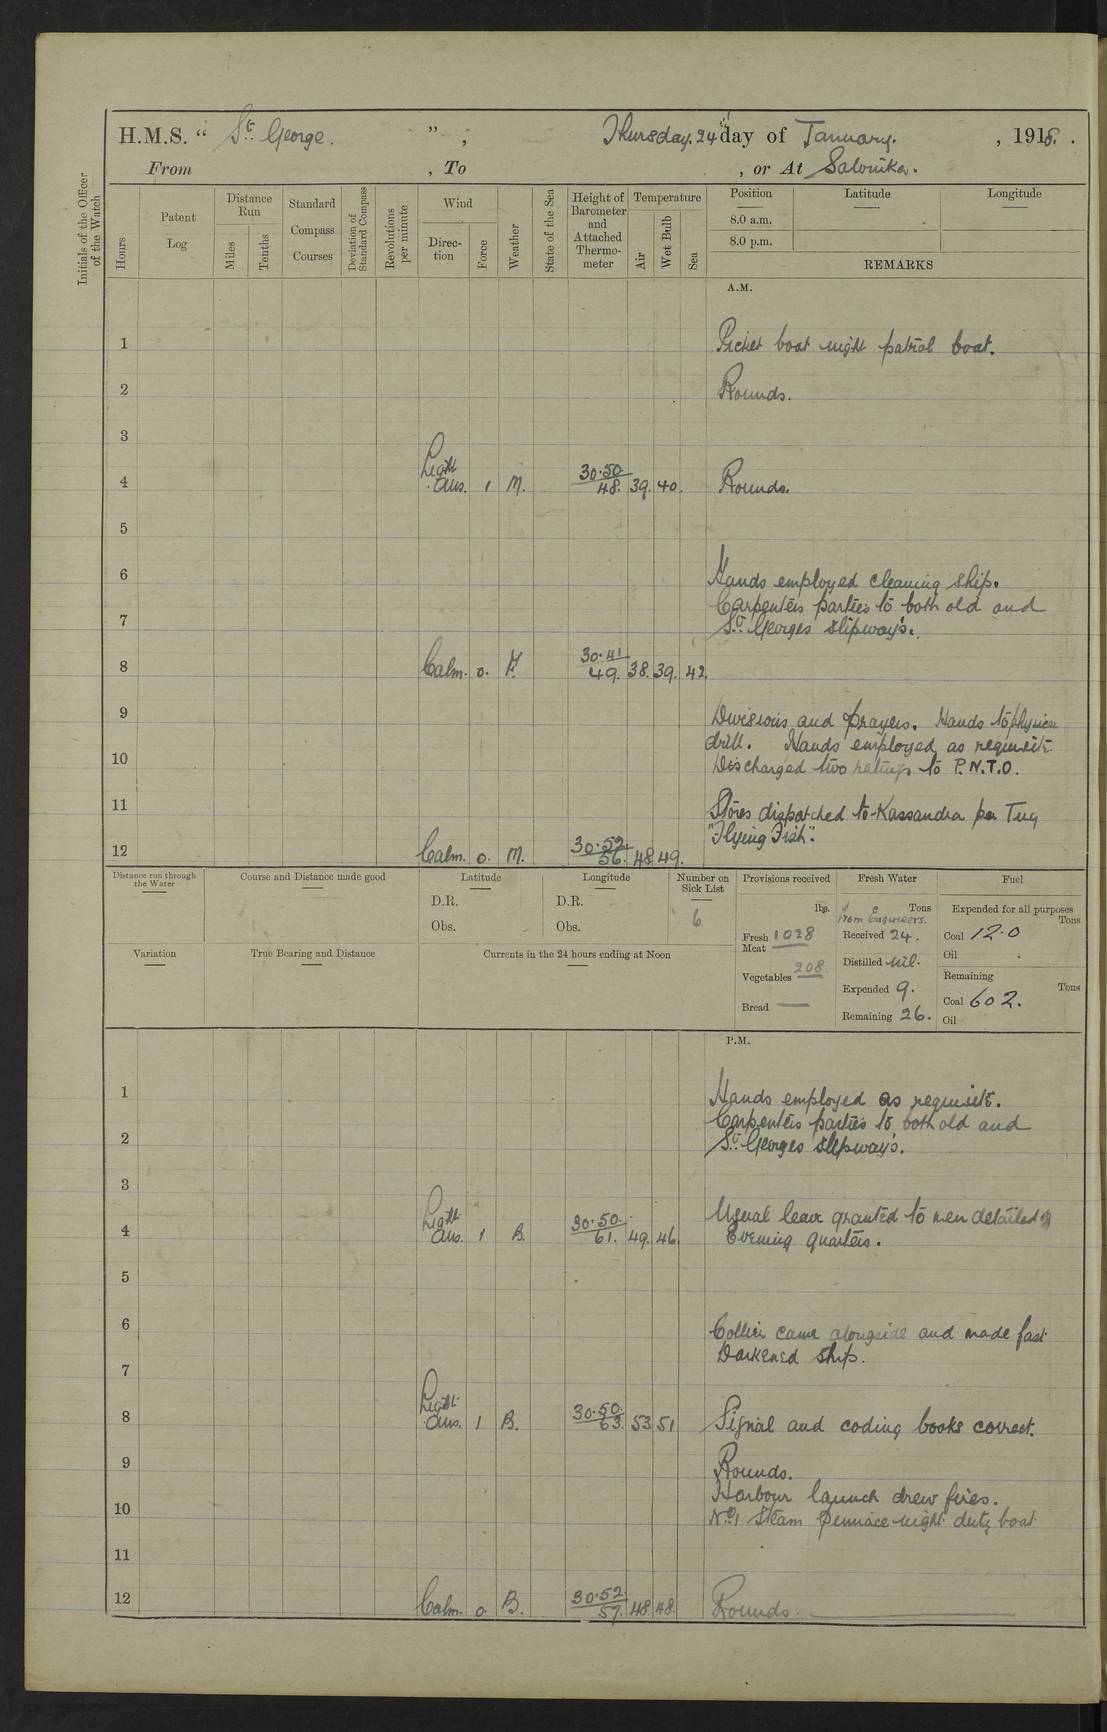 H.M.S. “ St George. ” , Thursday. 24th day of January. , 1918.
From , To , or At Salonika.
Initials of the Officer of the Watch
Hours
Patent Log
Distance Run
Miles
Tenths
Standard Compass Courses
Deviation of Standard Compass
Revolutions per minute
Wind
Direction
Force
Weather
State of the Sea
Height of Barometer and Attached Thermometer
Temperature
Air
Wet Bulb
Sea
Position Latitude Longitude
8.0 a.m.
8.0 p.m.
REMARKS
A.M.
1 Picket boat night patrol boat.
2 Rounds.
3
4 Light Airs. 1 M. 30.50 48. 39. 40. Rounds.
5
6 Hands employed cleaning ship.
Carpenters parties to both old and
7 St Georges slipway's.
8 Calm. 0. F. 30.41 49. 38. 39. 42.
9 Divisions and prayers. Hands to physical
drill. Hands employed as requisite
10 Discharged two ratings to P.N.T.O.
11 Stores dispatched to Kassandra per Tug
"Flying Fish".
12 Calm. 0. M. 30.52 56. 48 49.
Distance run through the Water
Course and Distance made good
Latitude
D.R.
Obs.
Longitude
D.R.
Obs.
Number on Sick List
6
Provisions received
lbs.
Fresh Meat 1028
Vegetables 208
Bread —
Fresh Water
Tons
From Engineers.
Received 24.
Distilled Nil.
Expended 9.
Remaining 26.
Fuel
Expended for all purposes
Tons
Coal 12.0
Oil
Remaining
Tons
Coal 602.
Oil
Variation
True Bearing and Distance
Currents in the 24 hours ending at Noon
P.M.
1 Hands employed as requisite.
Carpenters parties to both old and
2 St Georges slipway's.
3
4 Light Airs. 1 B. 30.50. 61. 49. 46. Usual leave granted to men detailed
Evening quarters.
5
6 Collier came alongside and made fast
Darkened ship.
7
8 Light Airs. 1 B. 30.50. 63. 53 51 Signal and coding books correct.
9 Rounds.
Harbour launch drew fires.
10 No 1 Steam Pinnace night duty boat
11
12 Calm. 0. B. 30.52. 57. 48. 48. Rounds.